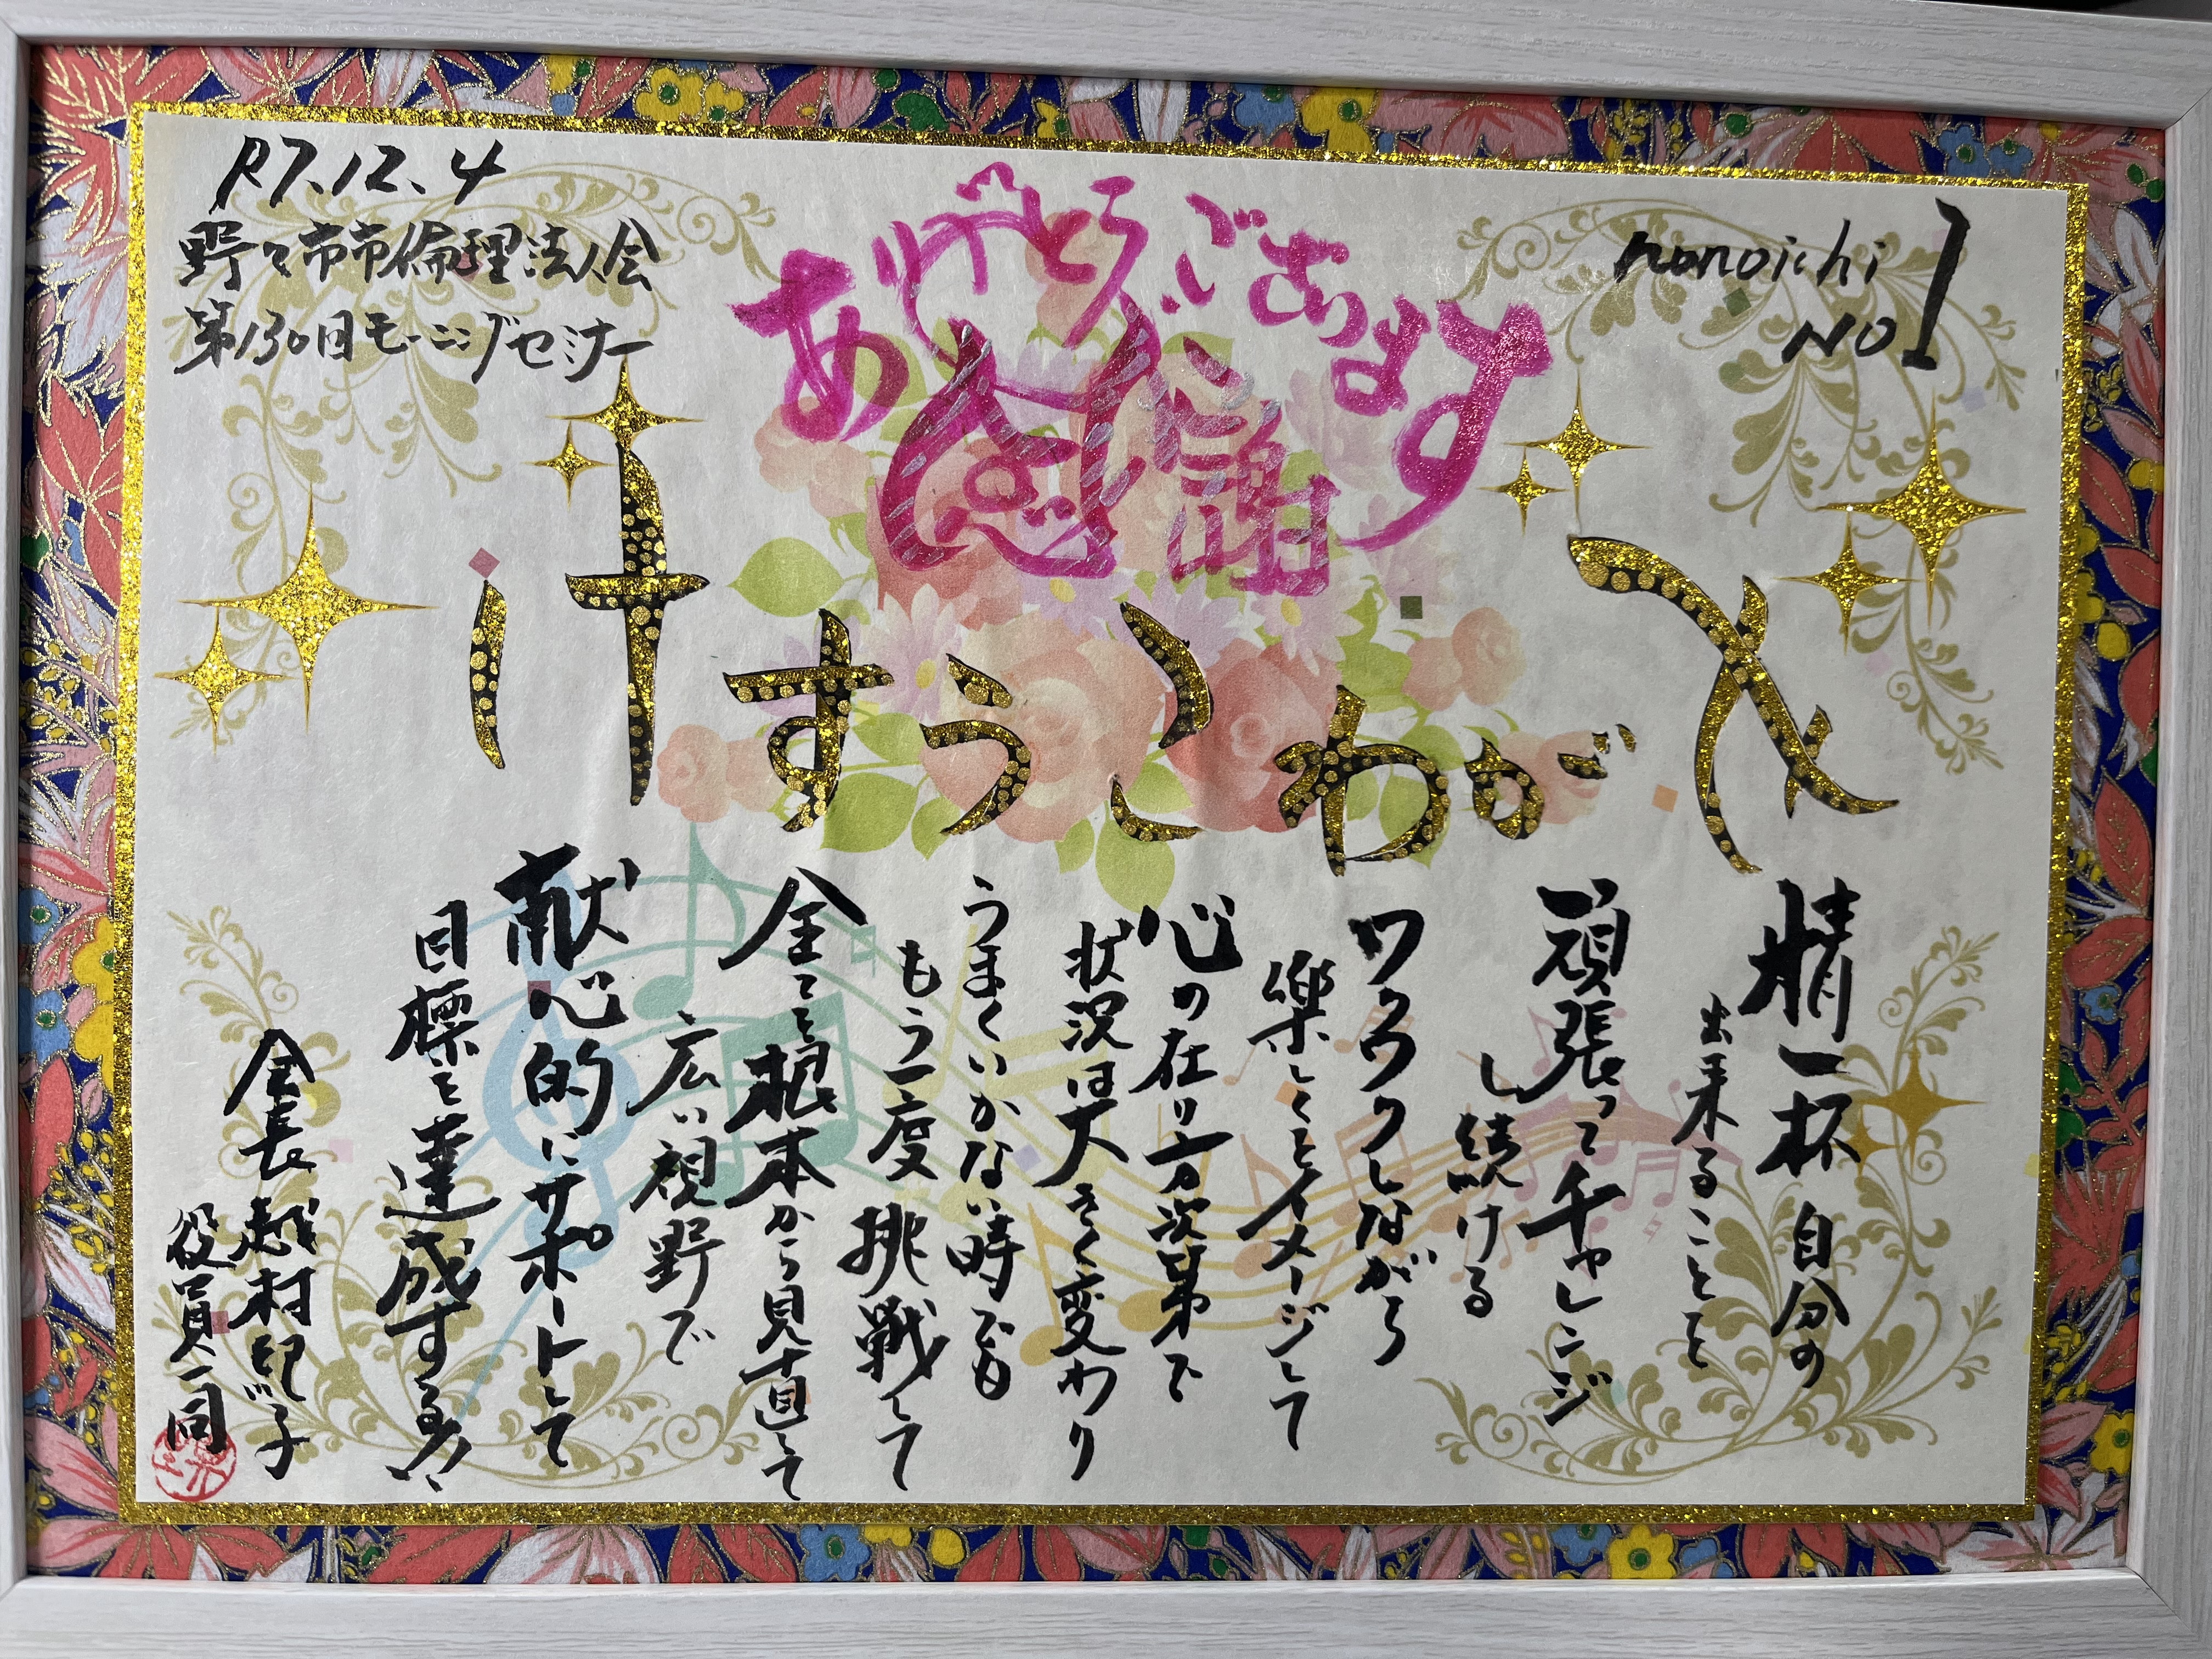 R7.12.4
野々市市倫理法人会
第130回モーニングセミナー
ありがとうございます
感謝
nonoichi
NO 1
せがわこうすけ
精一杯 自分の
出来ることを
頑張ってチャレンジ
し続ける
ワクワクしながら
楽しくをイメージして
心の在り方次第で
状況は大きく変わり
うまくいかない時でも
もう一度挑戦して
全てを根本から見直して
広い視野で
献心的にサポートして
目標を達成する!!
会長 越村
役員一同